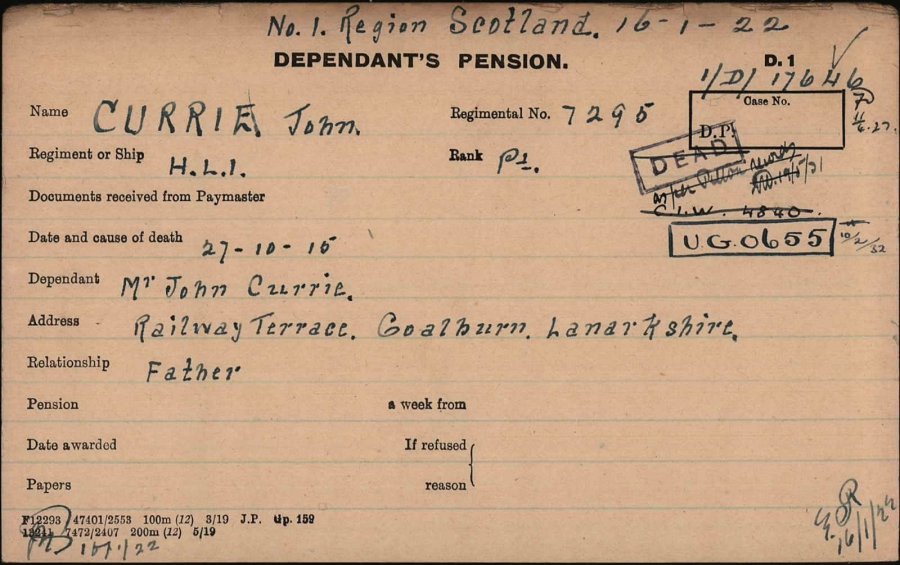 No. 1. Region Scotland. 16-1-22
DEPENDANT'S PENSION. D. 1
1/D/ 17646
Name CURRIE, John. Regimental No. 7295
Case No.
D.P.
Regiment or Ship H.L.I. Rank Pt.
DEAD
as per
records
19/5/31
Documents received from Paymaster
C.I.W. 4840.
Date and cause of death 27-10-15
U.G.0655
10/2/32
Dependant Mr John Currie.
Address Railway Terrace. Coalburn. Lanarkshire.
Relationship Father
Pension a week from
Date awarded If refused
Papers reason
F12293 47401/2553 100m (12) 3/19 J.P. Gp. 159
7472/2407 200m (12) 5/19
16/1/22
16/1/22